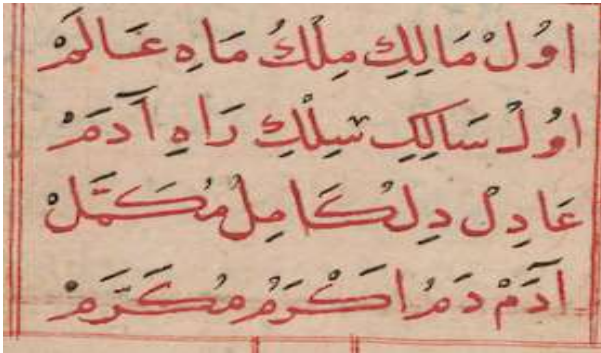 اوُلْ مَالِكِ مِلْكُ مَاهِ عَالَمْ
اوُلْ سَالِكِ سِلْكِ رَاهِ آدَمْ
عَادِلْ دِلُ كَامِلُ مُكَمَّلْ
آدَمْ دَمُ اكْرَمُ مُكَرَّمْ